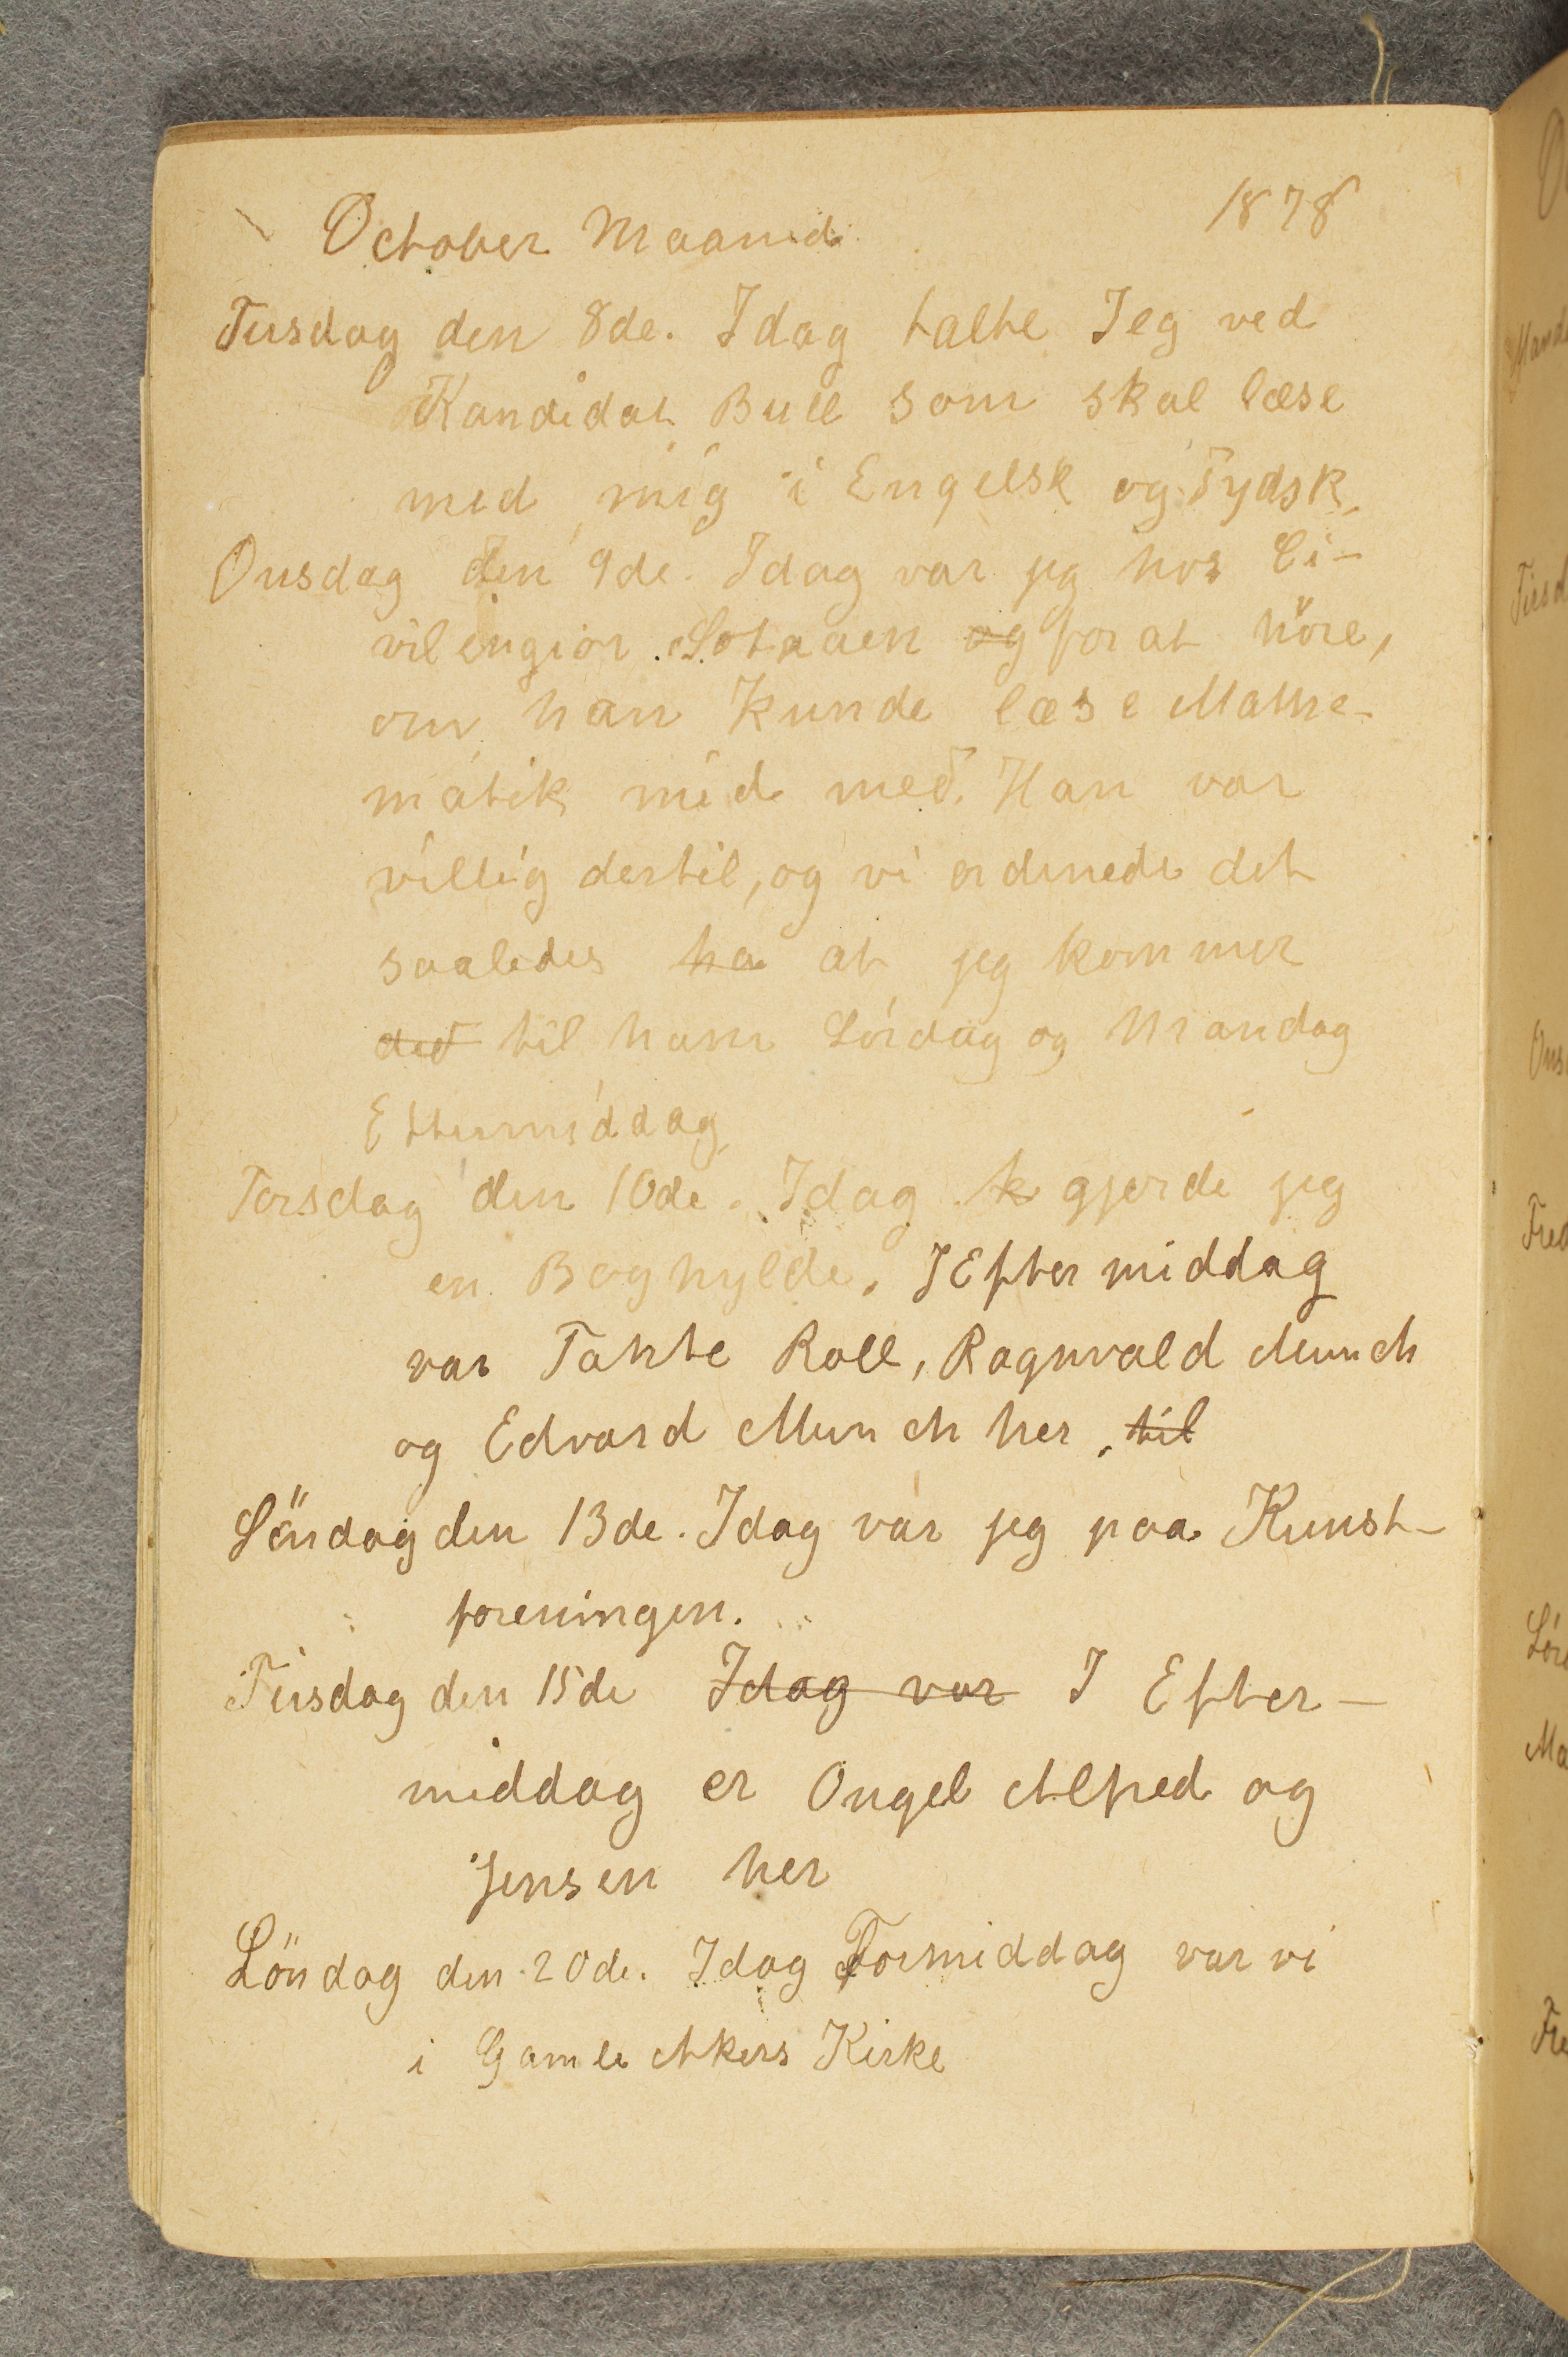 October Maaned 1878
Tirsdag den 8de. Idag talte Jeg ved
Kandidat Bull som skal læse
med mig i Engelsk og Tydsk.
Onsdag den 9de. Idag var jeg hos Ci-
vilengiør og for at höre,
om han kunde læse Mathe-
matik mid med. Han var
villig dertil, og vi ordenede det
saaledes ha at jeg kommer
did til ham Lördag og Mandag
Eftermiddag
Torsdag den 10de. Idag k gjorde jeg
en Boghylde. I Eftermiddag
var Tante Roll, Ragnvald Munch
og Edvard Munch her. til
Söndag den 13de. Idag var jeg paa Kunst-
foreningen.
Tirsdag den 15de Idag var I Efter-
middag er Ongel Alfred og
Jensen her
Söndag den 20de. Idag Formiddag var vi
i Gamle Akers Kirke